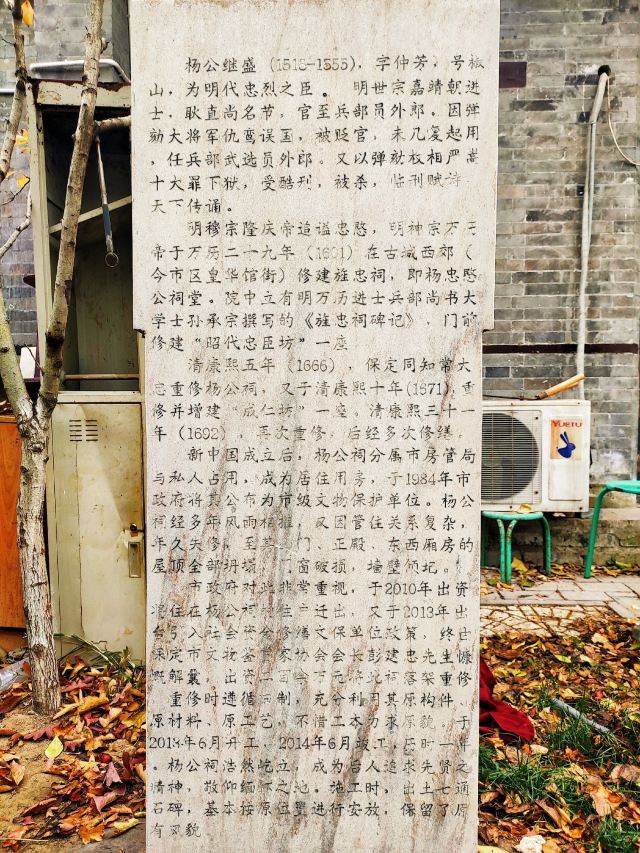 杨公继盛（1516-1555），字仲芳，号椒
山，为明代忠烈之臣。 明世宗嘉靖朝进
士，耿直尚名节，官至兵部员外郎。因弹
劾大将军仇鸾误国，被贬官，未几复起用
，任兵部武选员外郎。又以弹劾权相严嵩
十大罪下狱，受酷刑，被杀，临刑赋诗，
天下传诵。
明穆宗隆庆帝追谥忠愍，明神宗万历
帝于万历二一九年（1601）在古城西郊（
今市区皇华馆街）修建旌忠祠，即杨忠愍
公祠堂。院中立有明万历进士兵部尚书大
学士孙承宗撰写的《旌忠祠碑记》，门前
修建“昭代忠臣坊”一座
清康熙五年（1666），保定同知常大
忠重修杨公祠，又于清康熙十年(1671）重
修并增建“成仁坊”一座。清康熙三十一
年（1692），再次重修，后经多次修缮。
新中国成立后，杨公祠分属市房管局
与私人占用，成为居住用房，于1984年市
政府将其公布为市级文物保护单位。杨公
祠经多年风雨相摧，又因管住关系复杂，
年久失修，至其门、正殿、东西厢房的
屋顶全部坍塌，门窗破损，墙壁倾圮。
市政府对此非常重视，于2010年出资
将住在杨公祠住户迁出，又于2013年出
台引入社会资金修缮文保单位政策，终由
保定市文物鉴赏家协会会长彭建忠先生慷
慨解囊，出资二百余万元将此祠落架重修
重修时遵循旧制，充分利用其原构件、
原材料、原工艺，不惜工本力求原貌，于
2013年6月开工，2014年6月竣工，历时一年
。杨公祠浩然屹立，成为后人追求先贤之
精神，敬仰缅怀之地。施工时，出土七通
石碑，基本按原位置进行安放，保留了原
有风貌
YUETU